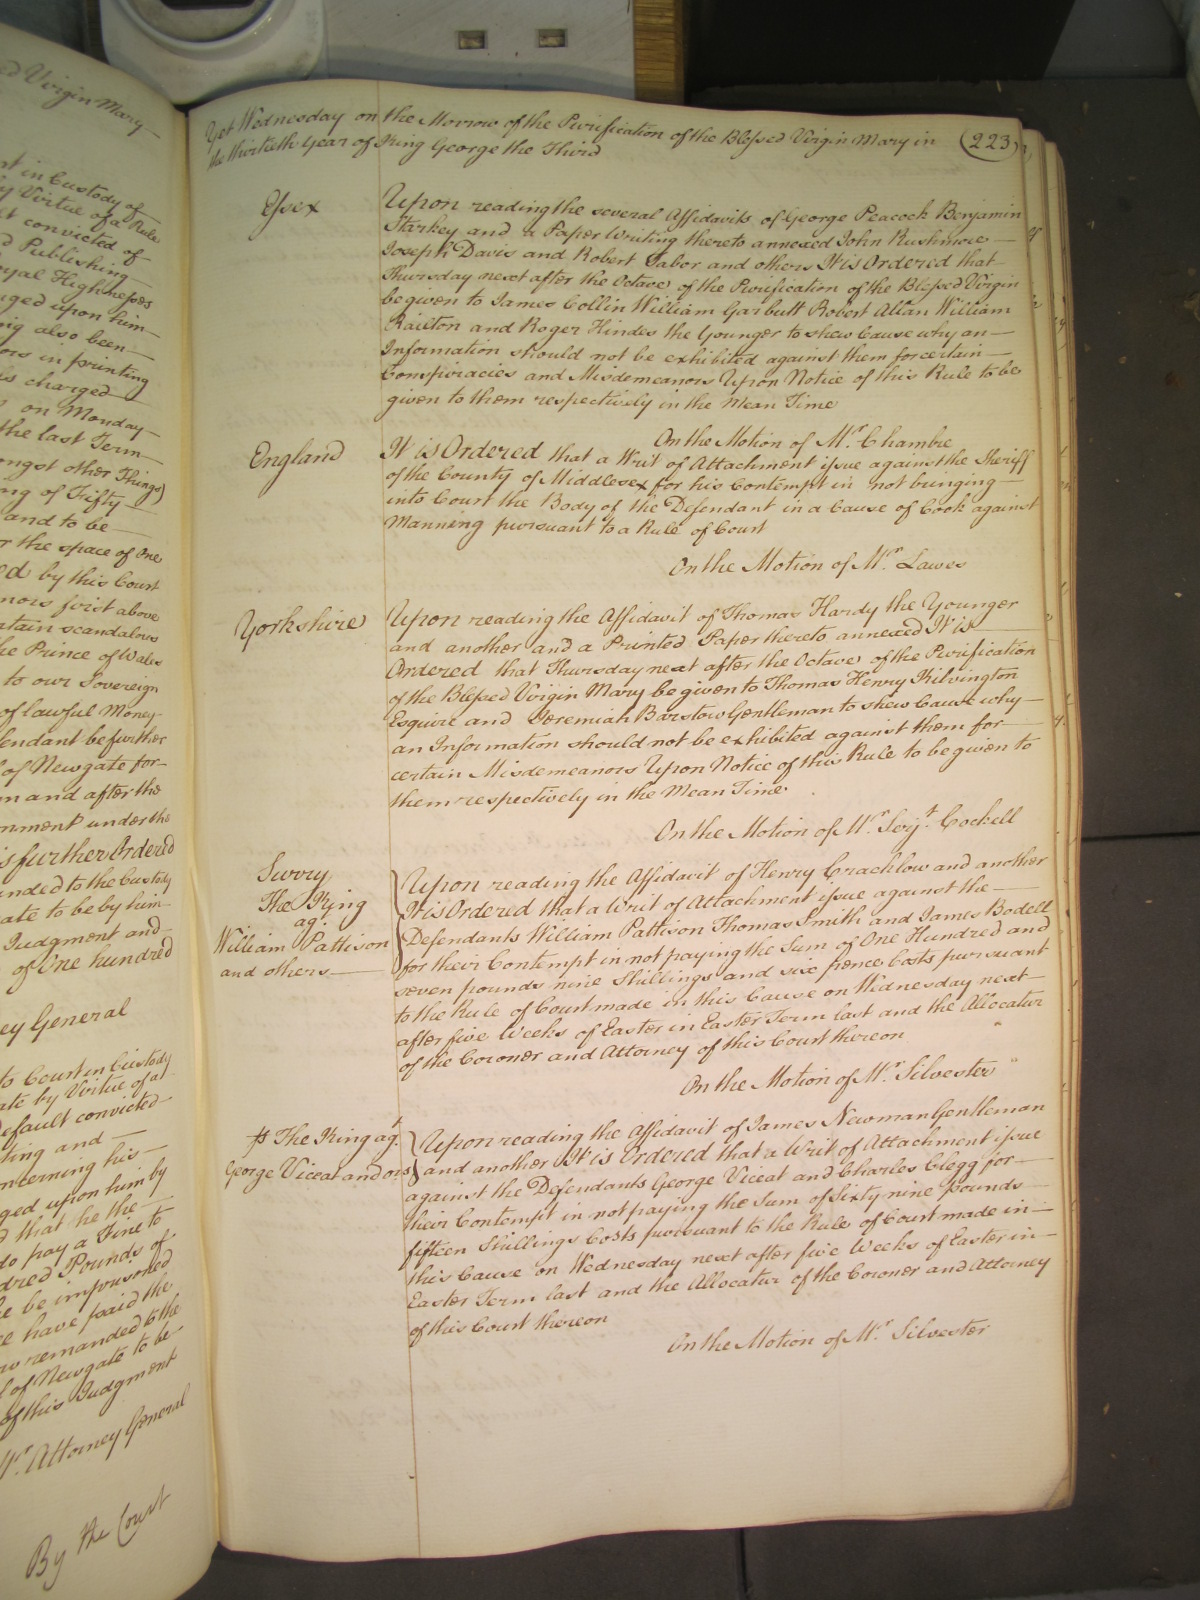 ed Virgin Mary
nt in Custody of
by Virtue of a Rule
convicted of
d Publishing
oyal Highnesses
rged upon him
ing also been
ors in printing
is charged
on Monday
the last Term
ongst other Things
ng of Fifty
and to be
r the space of One
ed by this Court
nors first above
rtain scandalous
he Prince of Wales
to our Sovereign
of lawful Money
fendant be further
l of Newgate for
m and after the
nment under the
is further Ordered
anded to the Custody
ate to be by him
Judgment and
of One hundred
ey General
to Court in Custody
ate by Virtue of a
Default convicted
ting and
ncerning his
ged upon him by
d that he the
do pay a Fine to
dred Pounds of
he be imprisoned
he have paid the
ow remanded to the
l of Newgate to be
of this Judgment
Mr. Attorney General
By the Court
Yet Wednesday on the Morrow of the Purification of the Blessed Virgin Mary in
the thirtieth Year of King George the Third
223
Essex
Upon reading the several Affidavits of George Peacock Benjamin
Starkey and a Paper Writing thereto annexed John Rushmore
Joseph Davis and Robert Tabor and others It is Ordered that
Thursday next after the Octave of the Purification of the Blessed Virgin
be given to James Collin William Garbutt Robert Allan William
Railton and Roger Hindes the Younger to shew Cause why an
Information should not be exhibited against them for certain
Conspiracies and Misdemeanors Upon Notice of this Rule to be
given to them respectively in the Mean Time
On the Motion of Mr. Chambre
England
It is Ordered that a Writ of Attachment issue against the Sheriff
of the County of Middlesex for his Contempt in not bringing
into Court the Body of the Defendant in a Cause of Cook against
Manneng pursuant to a Rule of Court
On the Motion of Mr. Lawes
Yorkshire
Upon reading the Affidavit of Thomas Hardy the Younger
and another and a Printed Paper thereto annexed It is
Ordered that Thursday next after the Octave of the Purification
of the Blessed Virgin Mary be given to Thomas Henry Kilvington
Esquire and Jeremiah Barstow Gentleman to shew Cause why
an Information should not be exhibited against them for
certain Misdemeanors Upon Notice of this Rule to be given to
them respectively in the Mean Time
On the Motion of Mr. Serjt. Cockell
Surry
The King
agt.
William Pattison
and others
Upon reading the Affidavit of Henry Cracklow and another
It is Ordered that a Writ of Attachment issue against the
Defendants William Pattison Thomas Smith and James Bodell
for their Contempt in not paying the Sum of One Hundred and
seven pounds nine Shillings and six pence Costs pursuant
to the Rule of Court made in this Cause on Wednesday next
after five Weeks of Easter in Easter Term last and the Allocatur
of the Coroner and Attorney of this Court thereon
On the Motion of Mr. Silvester
The King agt.
George Viceat and ors
Upon reading the Affidavit of James Newman Gentleman
and another It is Ordered that a Writ of Attachment issue
against the Defendants George Viceat and Charles Clegg for
their Contempt in not paying the Sum of Sixty nine pounds
fifteen Shillings Costs pursuant to the Rule of Court made in
this Cause on Wednesday next after five Weeks of Easter in
Easter Term last and the Allocatur of the Coroner and Attorney
of this Court thereon
On the Motion of Mr. Silvester